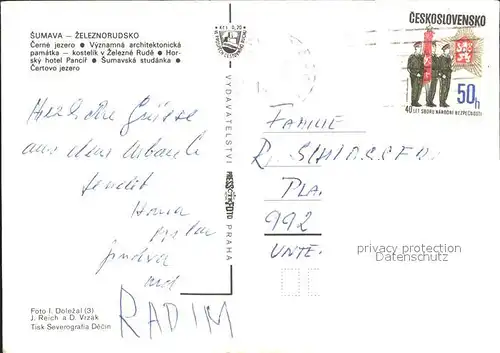 ŠUMAVA – ŽELEZNORUDSKO
Černé jezero • Významná architektonická
památka – kostelík v Železné Rudě • Hor-
ský hotel Pancíř • Šumavská studánka •
Čertovo jezero
Herzliche Grüsse
aus dem Urlaub
sendet
und
RADIM
Foto I. Doležal (3)
J. Reich a D. Vrzák
Tisk Severografia Děčín
VYDAVATELSTVÍ
PRESSFOTO
PRAHA
ČESKOSLOVENSKO
50h
40 LET SBORU NÁRODNÍ BEZPEČNOSTI
FAMILIE
PLA.
992
UNTE.
privacy protection
oldthing.de